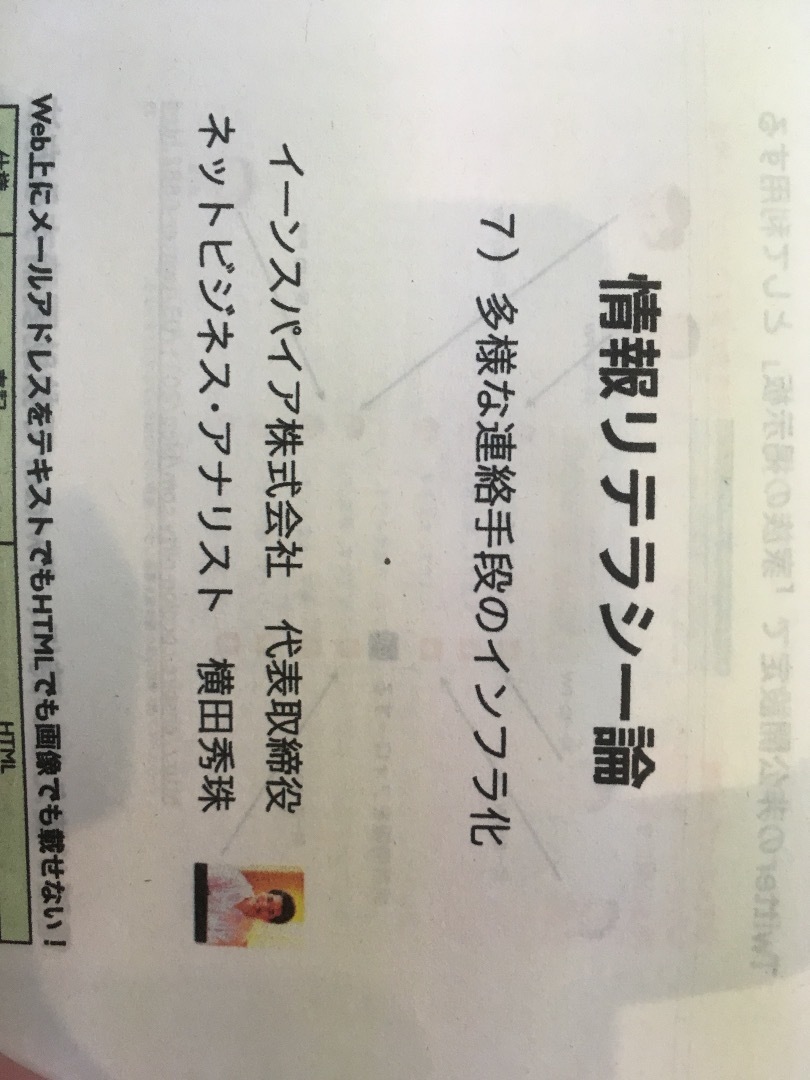 情報リテラシー論
7）多様な連絡手段のインフラ化
イーンスパイア株式会社　代表取締役
ネットビジネス・アナリスト　横田秀珠
Web上にメールアドレスをテキストでもHTMLでも画像でも載せない！
HTML